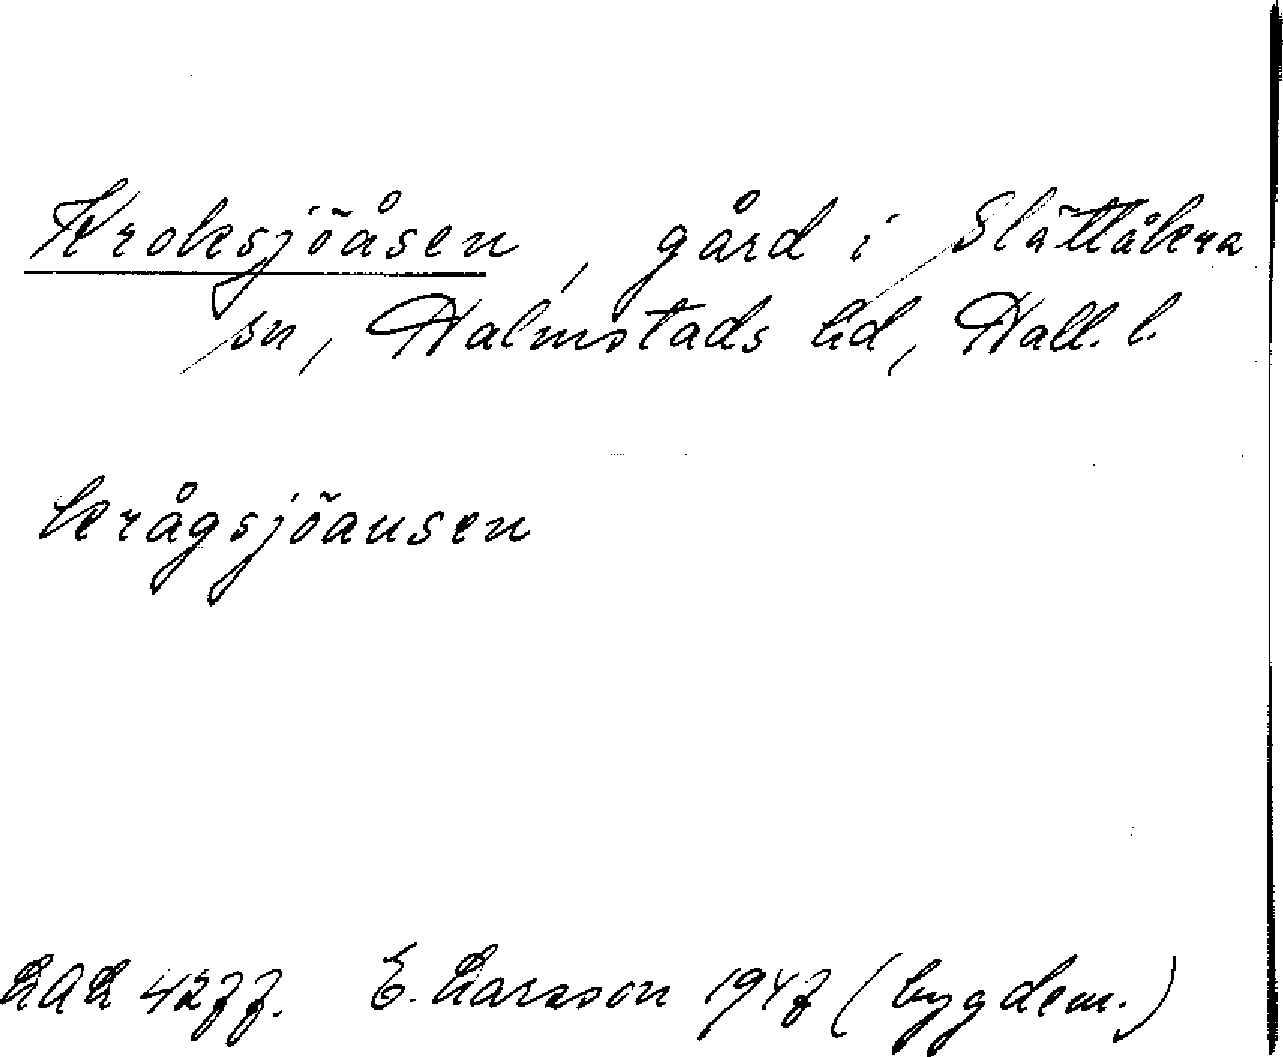 Kroksjöåsen, gård i Slättåkra
sn, Halmstads hd, Hall. l.
krågsjöausen
LAL 4277. E. Larsson 1947 (bygdem.)